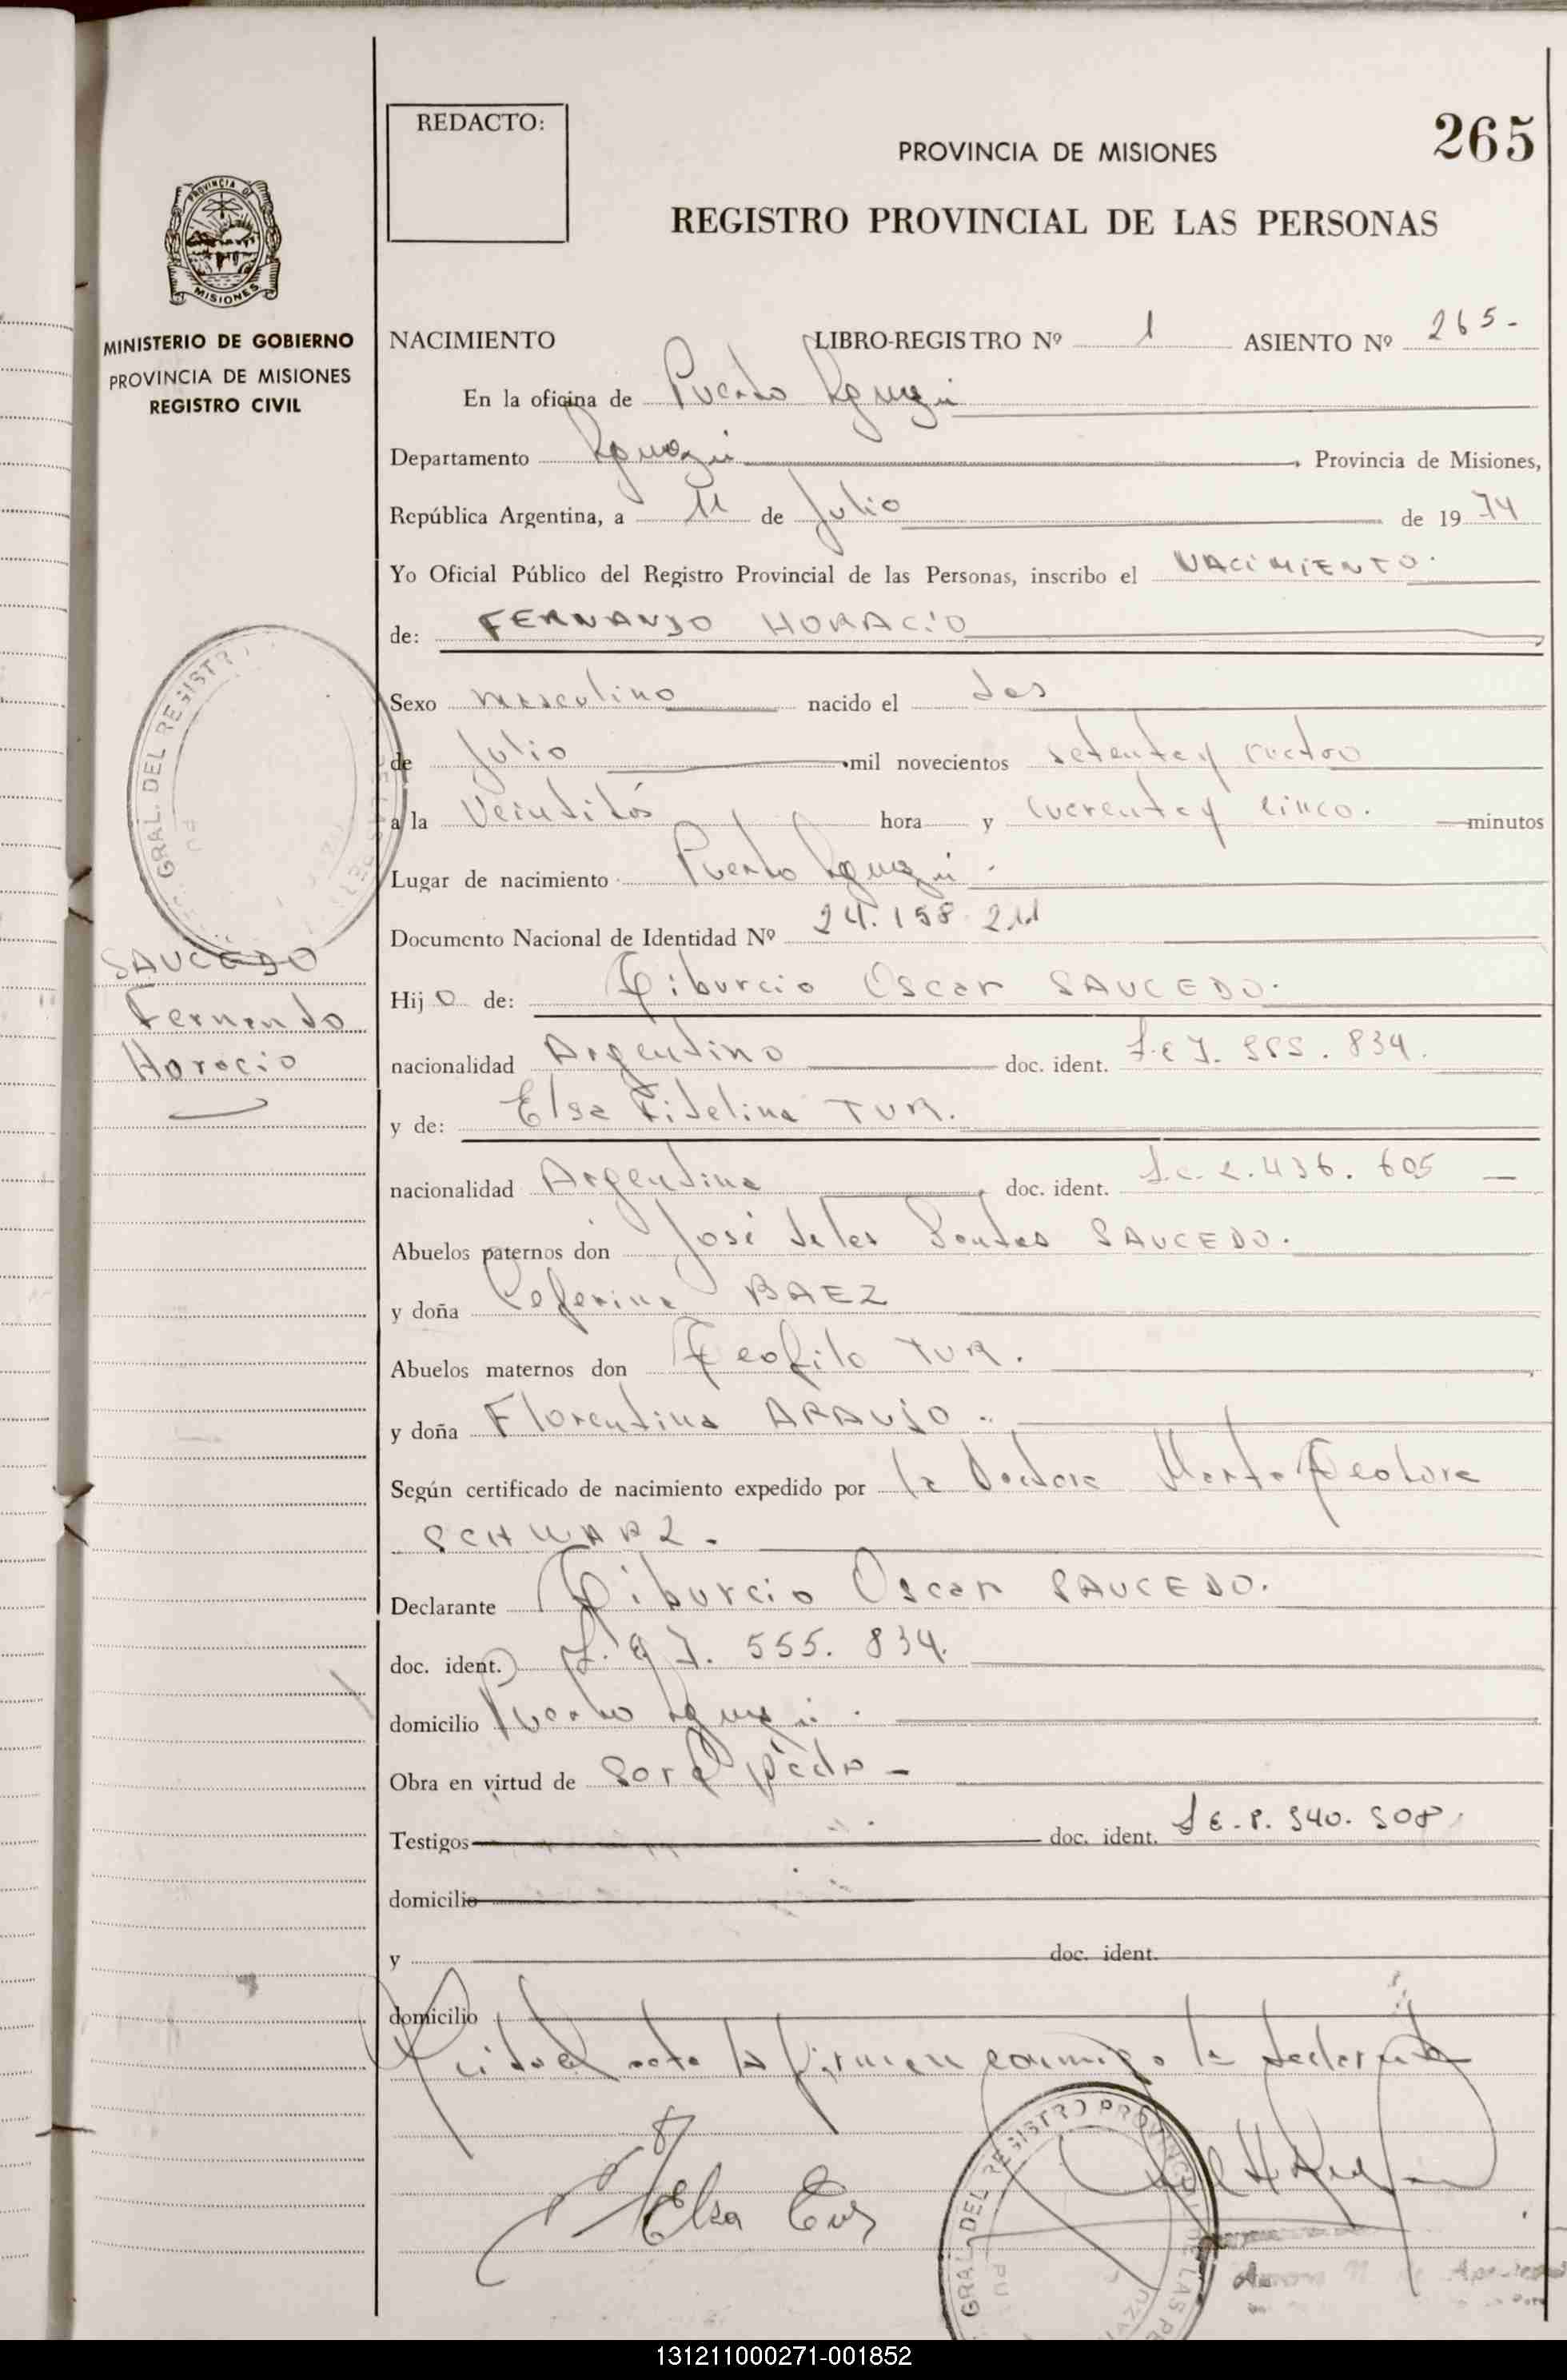 REDACTO:
265
PROVINCIA DE MISIONES
REGISTRO PROVINCIAL DE LAS PERSONAS
PROVINCIA DE
MISIONES
MINISTERIO DE GOBIERNO
PROVINCIA DE MISIONES
REGISTRO CIVIL
NACIMIENTO LIBRO-REGISTRO Nº 1 ASIENTO Nº 265-
En la oficina de Puerto Iguazú
Departamento Iguazú, Provincia de Misiones,
República Argentina, a 11 de Julio de 1974
Yo Oficial Público del Registro Provincial de las Personas, inscribo el NACIMIENTO.
de: FERNANDO HORACIO
Sexo masculino nacido el dos
de Julio mil novecientos setenta y cuatro
a la Veintidós hora y cuarenta y cinco. minutos
Lugar de nacimiento Puerto Iguazú.
Documento Nacional de Identidad Nº 24.158.211
GRAL. DEL REGISTR
SAUCEDO
Fernando
Horacio
Hijo de: Tiburcio Oscar SAUCEDO.
nacionalidad Argentino doc. ident. L.E 7.555.834.
y de: Elsa Fidelina TUR.
nacionalidad Argentina, doc. ident. L.C. 2.436.605
Abuelos paternos don José de los Santos SAUCEDO.
y doña Ceferina BAEZ
Abuelos maternos don Teofilo TUR.
y doña Florentina ARAUJO.
Según certificado de nacimiento expedido por la Doctora Marta Teodora
SCHWARZ.
Declarante Tiburcio Oscar SAUCEDO.
doc. ident. L.E 7.555.834.
domicilio Puerto Iguazú.
Obra en virtud de
Testigos doc. ident. L E - 8.540.508
domicilio
y doc. ident.
domicilio
Leida el acta la firman conmigo la declarante
Elsa Tur
GRAL. DEL REGISTRO PROVINCIAL DE LAS PE
131211000271-001852